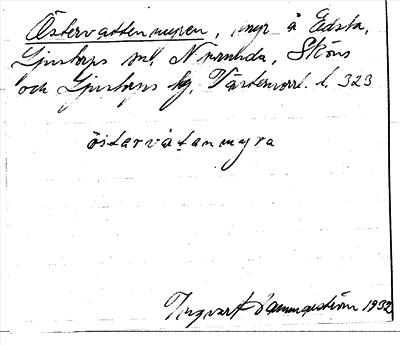 Östervattenmyren, myr å Edsta,
Ljustorps sn, N randa, Sköns
och Ljustorps tg. Västernorrl. l. 323
östarvåtanmyra
Ingvart Dammeström 1932